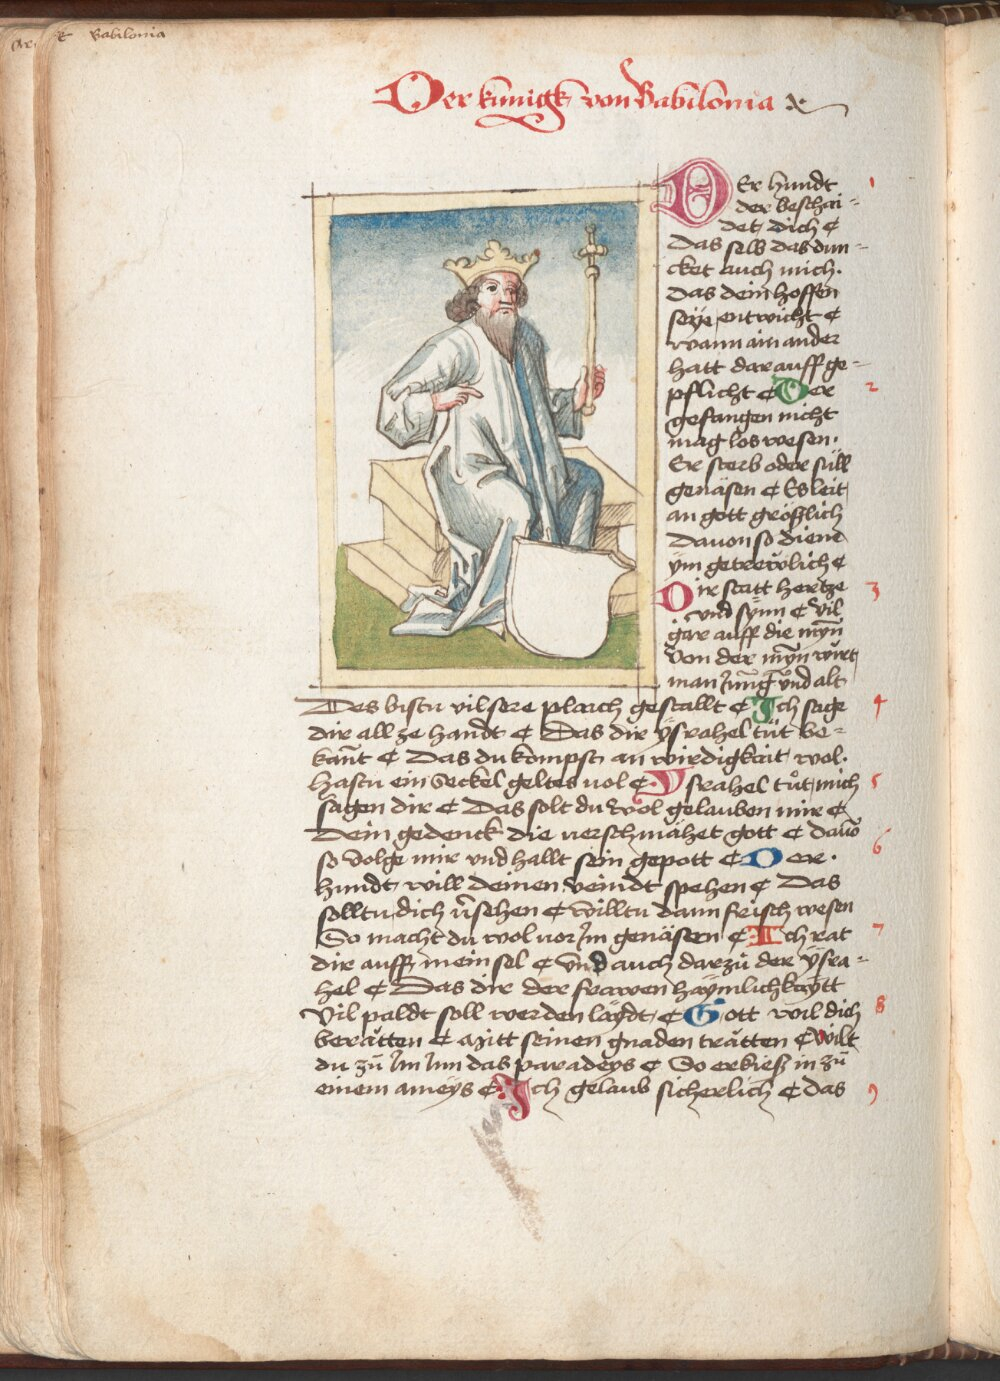 Babilonia
Der kunigk von Babilonia
DEr hundt 1
der beschai-
det dich ¢
Das selb das dun-
cket auch mich.
Das dein hoffen
seÿe entwicht ¢
wann ain ander
hatt darauff ge-
pflicht ¢ Der 2
gefangen nicht
mag los wesen.
Er sterb oder süll
genäsen ¢ Es leit
an gott größlich
Dauon so diene
ÿm getrewlich ¢
Dir statt hertze 3
vnd sÿnn ¢ vil
gar auff die mÿn̄
Von der mÿn̄ würt
man Jung vnd alt
Des bistu vil sere plaich gestallt ¢ Ich sage 4
dir all ze handt ¢ Das dir ÿsrahel tüt be-
kan̄t ¢ Das du kompst an wirdigkait wol.
hastu ein Seckel geltes vol ¢ Ysrahel tuͦt mich 5
sagen dir ¢ Das solt du wol gelauben mir ¢
Dein gedenck die verschmähet gott ¢ dauō
so volge mir vnd hallt sein gepott ¢ Der. 6
hundt will deinen veindt spehen ¢ Das
solltu dich v̄sehen ¢ willtu dann frisch wesen
So macht du wol vor Im genäsen ¢ Ich rat 7
dir auff mein sel ¢ vnd auch darzü der ÿsra-
hel ¢ Das dir der frawen haÿmlichkaÿtt
Vil paldt soll werden laÿdt ¢ Gott wil dich 8
berätten ¢ Mitt seinen gnaden trätten ¢ wilt
du zü Im Inn das paradeÿs ¢ So erkieß in zü
einem ameÿs ¢ Ich gelaub sicherlich ¢ das 9